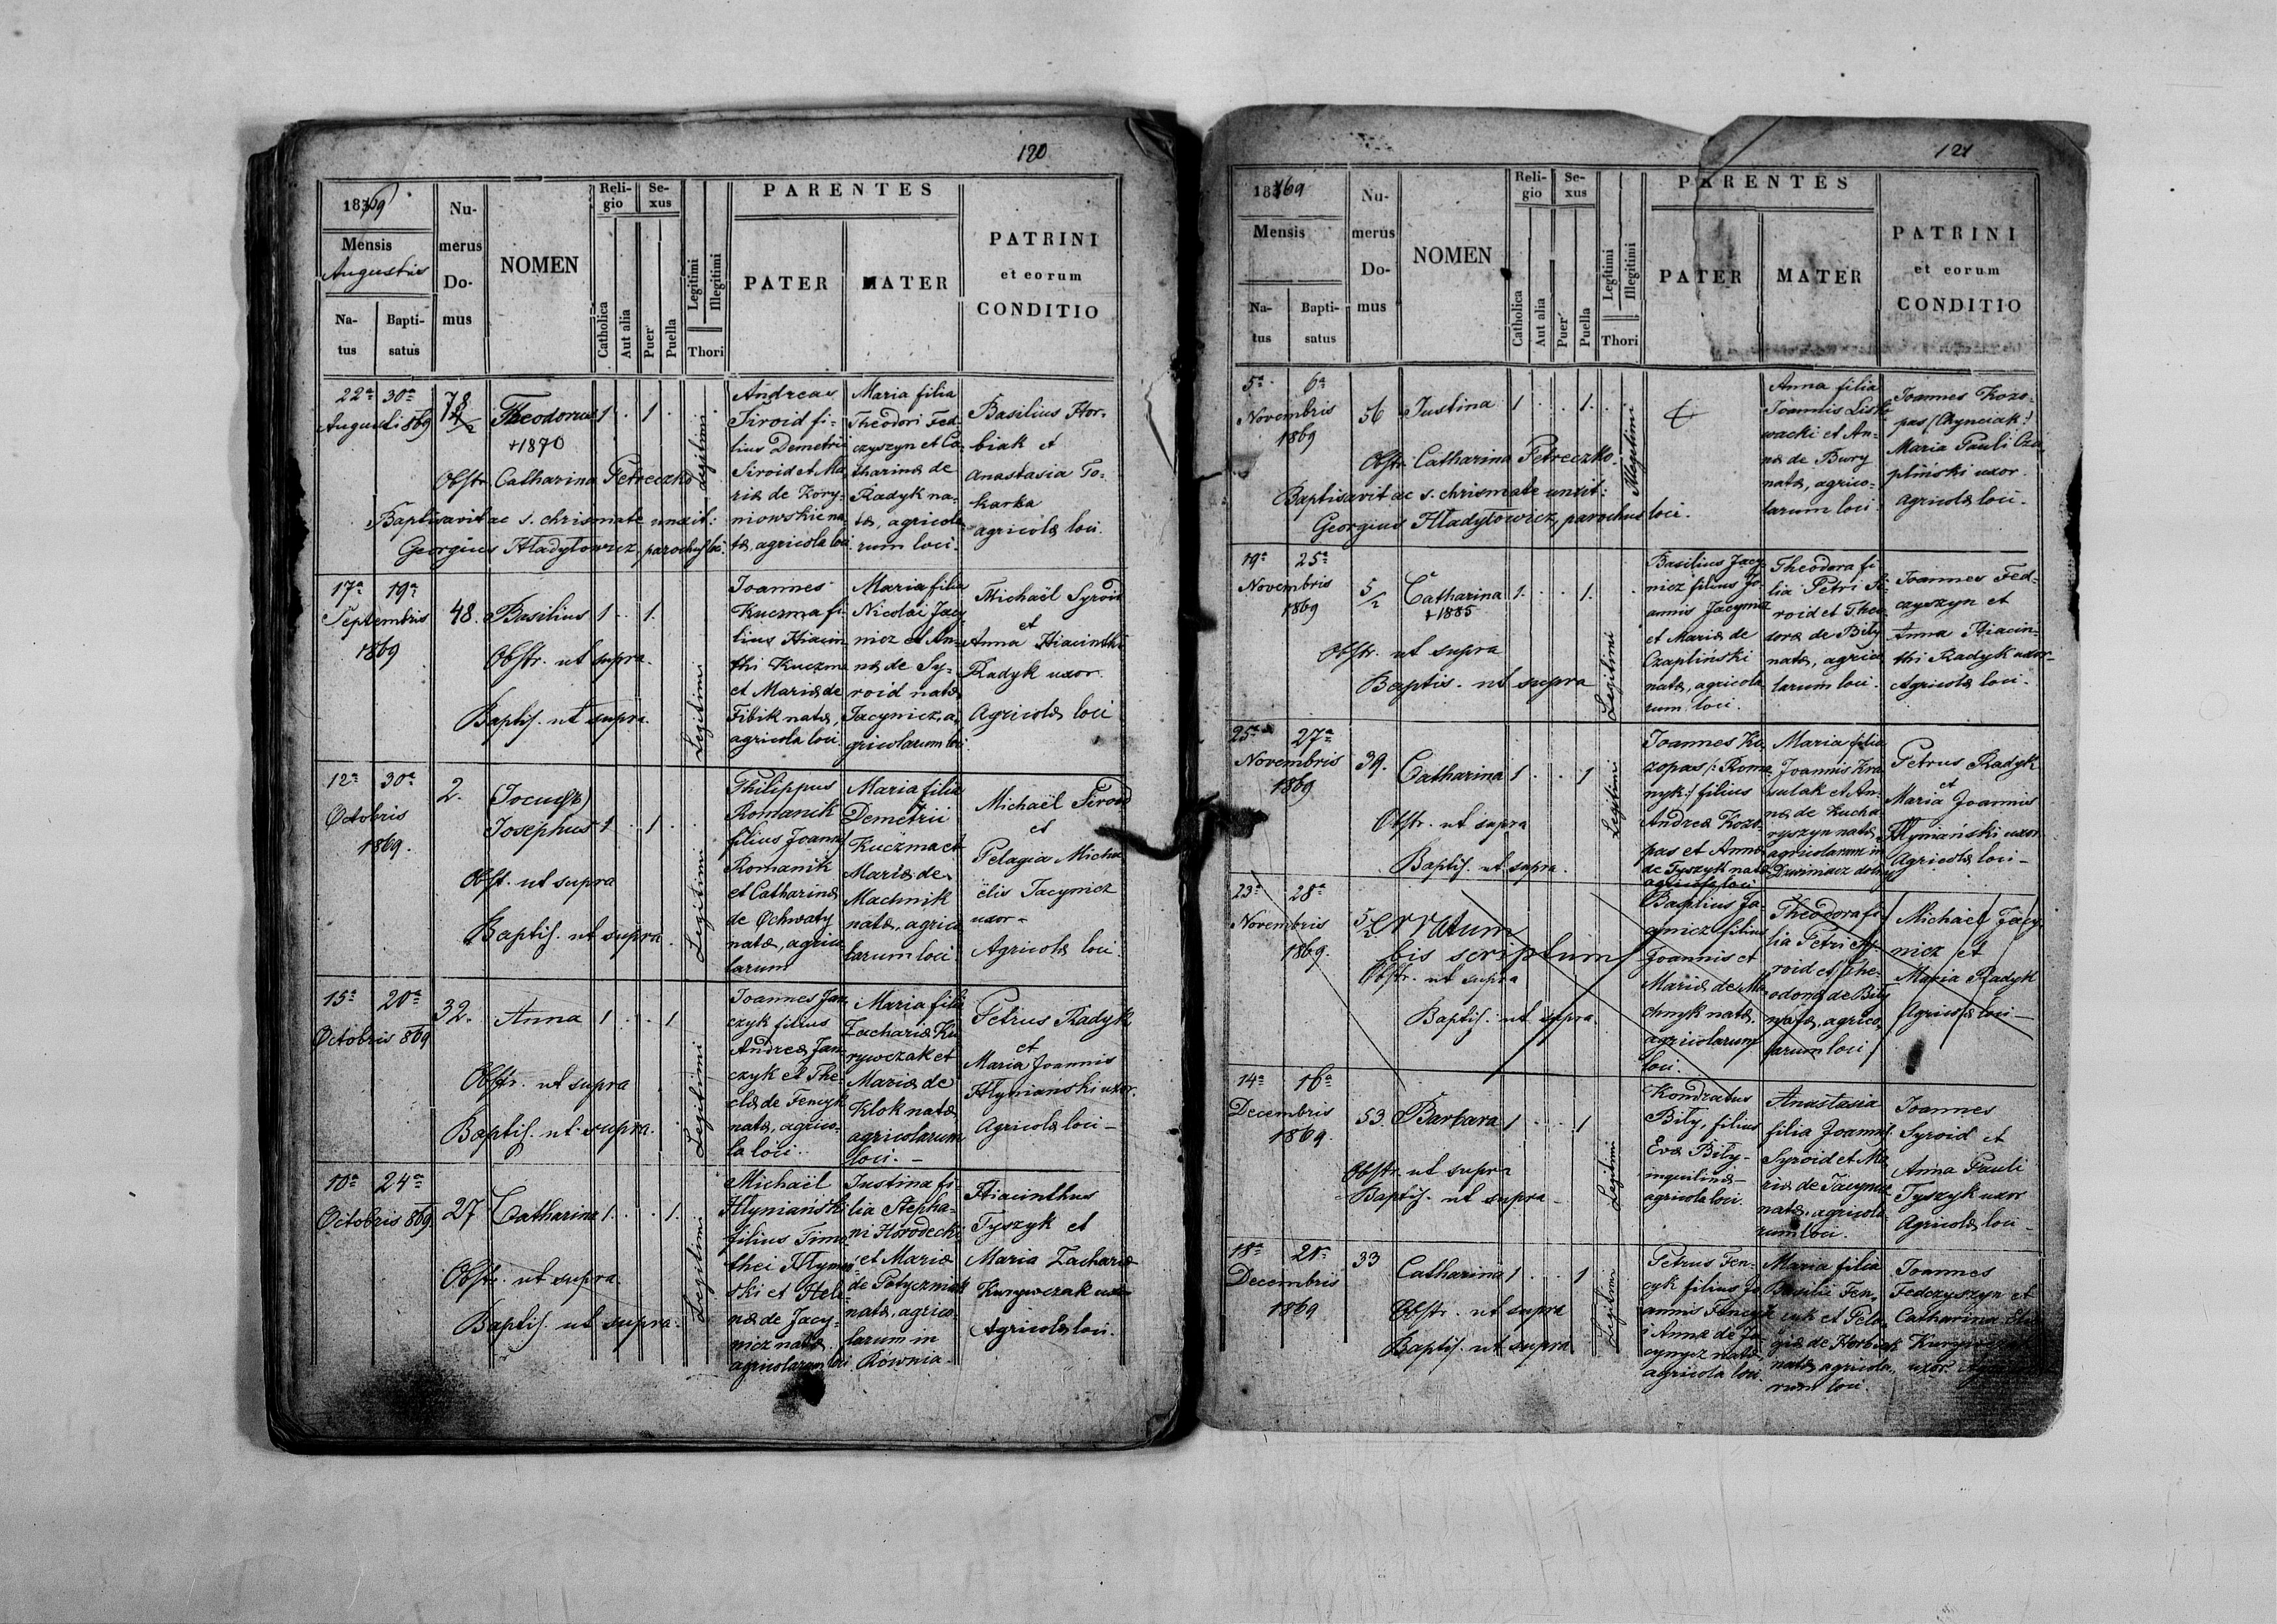 120
1869
Mensis
Augustus
Natus
Baptisatus
Numerus Domus
NOMEN
Religio
Catholica
Aut alia
Sexus
Puer
Puella
Legitimi
Illegitimi
Thori
PARENTES
PATER
MATER
PATRINI
et eorum
CONDITIO
22ª 30ª
Augusti 869
78
Theodorus 1 . 1 .
+1870
Obstr. Catharina Petreczko
Baptisavit ac s. chrismate unxit:
Georgius Hładyłowicz, parochus loci.
Legitimi
Andreas
Siroid fi-
lius Demetrii
Siroid et Ma-
riæ de Zory-
niowskie na-
tæ, agricola loci
Maria filia
Theodori Fed-
czyszyn et Ca-
tharinæ de
Radyk na-
tæ, agricola-
rum loci.
Basilius Hor-
biak et
Anastasia To-
karka
agricolæ loci.
17ª 19ª
Septembris
1869
48.
Basilius 1 . 1.
Obstr. ut supra.
Baptis. ut supra.
Legitimi
Joannes
Kuczma fi-
lius Hiacin-
thi Kuczma
et Mariæ de
Fibik natæ,
agricola loci
Maria filia
Nicolai Jacy-
nicz et An-
næ de Sy-
roid natæ
Jacynicz, a-
gricolarum loci
Michaël Syroid
et
Anna Hiacinthi
Radyk uxor.
Agricolæ loci
12ª 30ª
Octobris
1869.
2.
(Госифъ)
Josephus 1 . 1 .
Obst. ut supra
Baptis. ut supra.
Legitimi
Philippus
Romanik
filius Joannis
Romanik
et Catharinæ
de Ochwaty
natæ, agrico-
larum
Maria filia
Demetrii
Kuczma et
Mariæ de
Machnik
natæ, agrico-
larum loci.
Michaël Siroid
et
Pelagia Micha-
ëlis Jacynicz
uxor -
Agricolæ loci.
15ª 20ª
Octobris 869
32.
Anna 1 . . 1
Obstr. ut supra
Baptis. ut supra.
Legitimi
Joannes Jan-
czyk filius
Andreæ Jan-
czyk et The-
clæ de Fencyk
natæ, agrico-
la loci.
Maria filia
Zachariæ Ku-
rywczak et
Mariæ de
Klok natæ
agricolarum
loci. -
Petrus Radyk
et
Maria Joannis
Hlynianski uxor.
Agricolæ loci -
10ª 24ª
Octobris 869
27
Catharina 1. . . 1.
Obstr. ut supra.
Baptis. ut supra.
Legitimi
Michaël
Hlyniański
filius Timo-
thei Hlynian-
ski et Hele-
næ de Jacy-
nicz natæ
agricolarum loci
Justina fi-
lia Stepha-
ni Horodecki
et Mariæ
de Potyczniak
natæ, agrico-
larum in
Równia.
Hiacinthus
Tyszyk et
Maria Zachariæ
Kurywczak uxor
Agricolæ loci.
121
1869
Mensis
Natus
Baptisatus
Numerus Domus
NOMEN
Religio
Catholica
Aut alia
Sexus
Puer
Puella
Legitimi
Illegitimi
Thori
PARENTES
PATER
MATER
PATRINI
et eorum
CONDITIO
5ª 6ª
Novembris
1869
56
Justina 1 . . 1.
Obstr. Catharina Petreczko.
Baptisavit ac s. chrismate unxit:
Georgius Hładyłowicz, parochus loci.
Illegitimi
Anna filia
Joannis Lisko-
wacki et An-
næ de Bury
natæ, agrico-
larum loci
Joannes Kozo-
pas /:Chynciak:/
Maria Pauli Cza-
pliński uxor.
Agricolæ loci.
19ª 25ª
Novembris
1869
5/2
Catharina 1. . . 1.
+1885
Obstr. ut supra
Baptis. ut supra
Legitimi
Basilius Jacy-
nicz filius Jo-
annis Jacynicz
et Mariæ de
Czapliński
natæ, agricola-
rum loci.
Theodora fi-
lia Petri Si-
roid et Theo-
doræ de Bily
natæ, agrico-
larum loci.
Joannes Fed-
czyszyn et
Anna Hiacin-
thi Radyk uxor-
Agricolæ loci.
25ª 27ª
Novembris
1869
39.
Catharina 1 . . 1
Obstr. ut supra
Baptis. ut supra.
Legitimi
Joannes Ko-
zopas /: Roma-
nyk:/ filius
Andreæ Kozo-
pas et Annæ
de Tyszyk natæ
agricola loci
Maria filia
Joannis Kra-
sulak et An-
næ de Kucha-
ryszyn natæ
agricolarum in
Petrus Radyk
et
Maria Joannis
Hlyniański uxor
Agricolæ loci -
23ª 28ª
Novembris
1869.
5/2
erratum
bis scriptum
Obstr. ut supra
Baptis. ut supra.
Basilius Ja-
cynicz filius
Joannis et
Mariæ de Ma-
chnyk natæ,
agricolarum
loci.
Theodora fi-
lia Petri Sy-
roid et The-
odoræ de Bily
natæ, agrico-
larum loci
Michaël Jacy-
nicz et
Maria Radyk
Agricolæ loci -
14ª 16ª
Decembris
1869.
53.
Barbara 1 . . 1
Obstr. ut supra
Baptis. ut supra -
Legitimi
Kondratus
Bily, filius
Evæ Bily-
inquilinæ -
agricola loci.
Anastasia
filia Joannis
Syroid et Ma-
riæ de Jacynicz
natæ, agricola-
rum loci.
Joannes
Syroid et
Anna Pauli
Tyszyk uxor
Agricolæ loci -
18ª 21ª
Decembris
1869
33
Catharina 1 . . 1
Obstr. ut supra
Baptis. ut supra
Legitimi
Petrus Fen-
cyk filius Jo-
annis Fencyk
et Annæ de Ja-
cynycz natæ,
agricola loci.
Maria filia
Basilii Fen-
cyk et Pela-
giæ de Horbiak
natæ, agricola-
rum loci.
Joannes
Fedczyszyn et
Catharina
uxor.